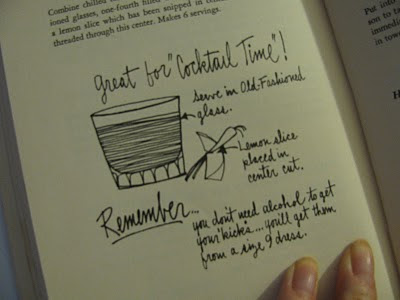 Combine chilled
ioned glasses, one-fourth filled
a lemon slice which has been snipped in
threaded through this center. Makes 6 servings.
great for "Cocktail Time"!
serve in Old-Fashioned
glass.
Lemon slice
placed in
center cut.
Remember...
you don't need alcohol to get
your "kicks"....you'll get them
from a size 9 dress.
Put into
son to ta
immedi
in towe
H